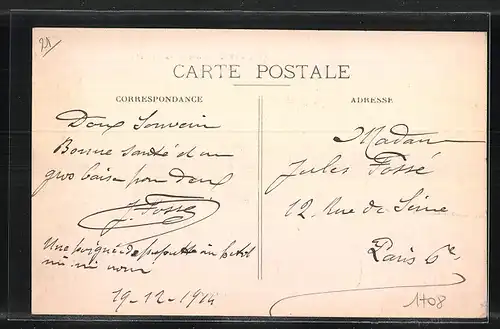 21
CARTE POSTALE
CORRESPONDANCE
Doux Souvenir
Bonne santé et un
gros baiser pour deux
J. Fossé
Une poignée de
19-12-1914
ADRESSE
Madame
Jules Fossé
12, Rue de Seine
Paris 6e
1408